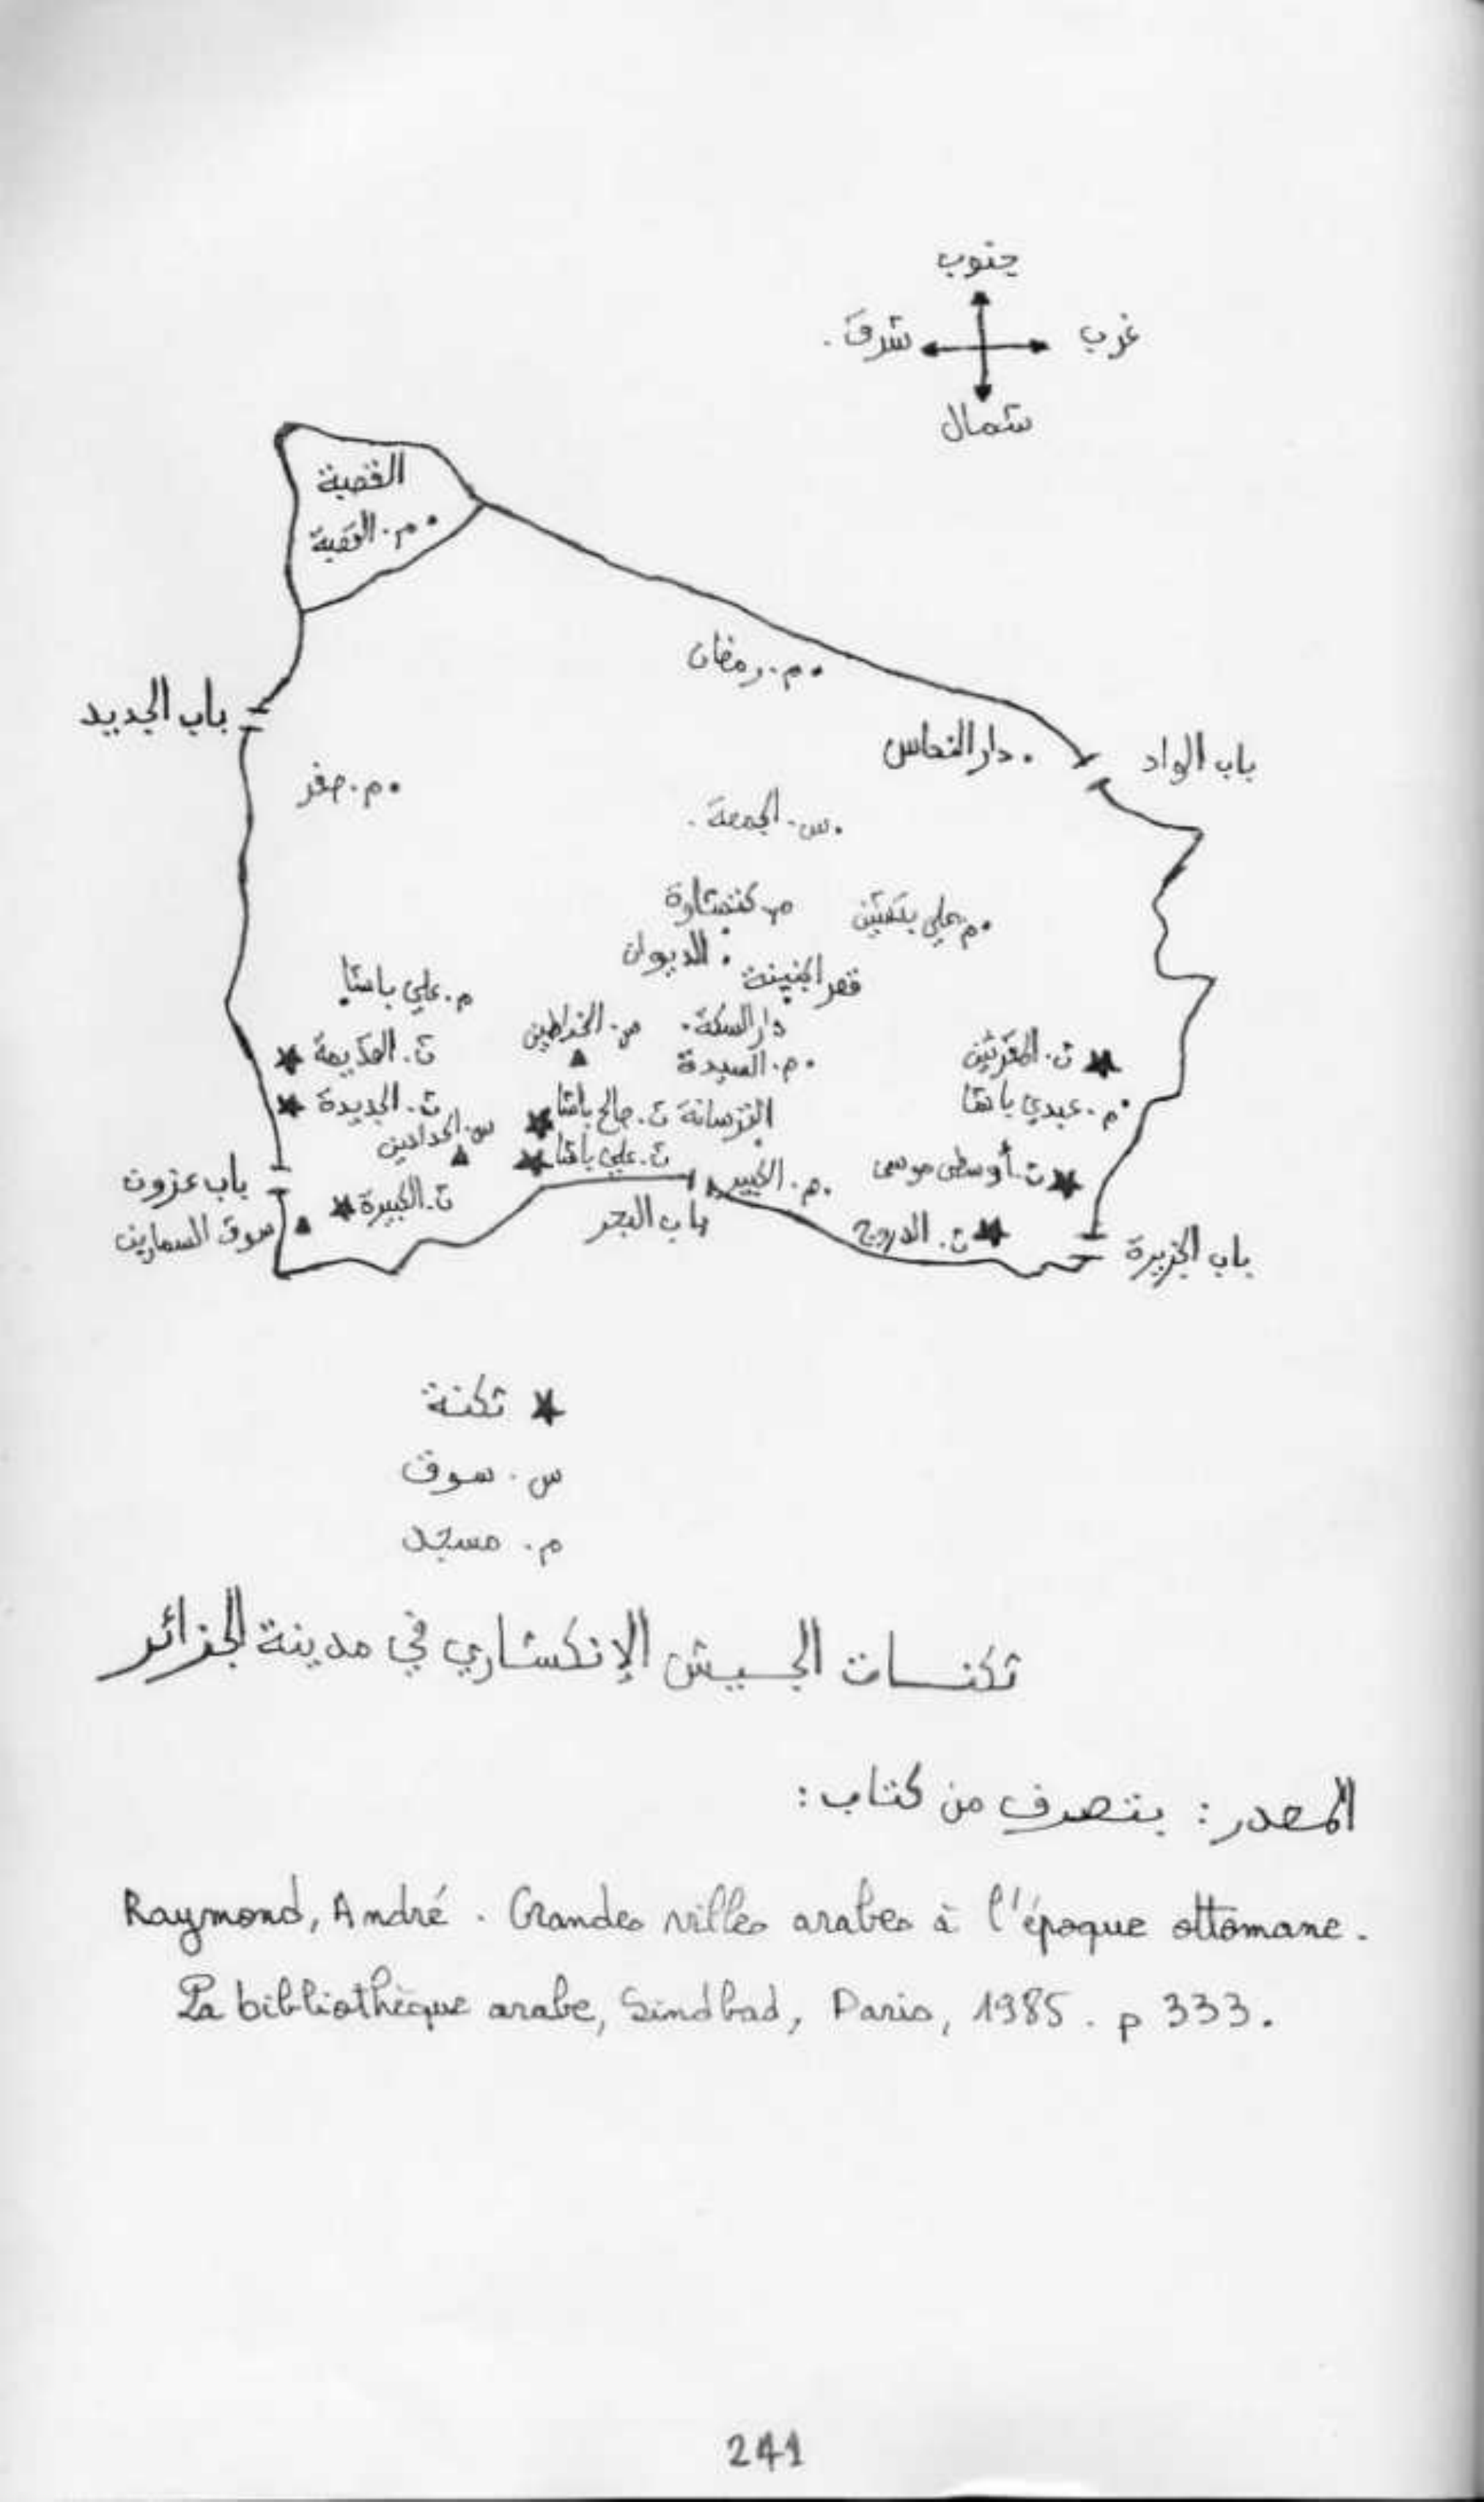 جنوب
غرب
شرق
شمال
القصبة
م. القصبة
م. رمضان
باب الجديد
دار النحاس
باب الواد
م. صفر
س. الجمعة
م. كتشاوة
م. علي بتشين
الديوان
قصر الجنينة
م. علي باشا
س. الخراطين
دار السكة
ث. القديمة
م. السيدة
ث. المقرئين
ث. الجديدة
ث. صالح باشا
الترسانة
م. عبدي باشا
س. الحدادين
ث. علي باشا
م. الكبير
ث. أوسطى موسى
باب عزون
ث. الكبيرة
سوق السمارين
باب البحر
ث. الدروج
باب الجزيرة
ثكنة
س. سوق
م. مسجد
ثكنات الجيش الإنكشاري في مدينة الجزائر
المصدر: بتصرف من كتاب:
Raymond, André. Grandes villes arabes à l'époque ottomane.
La bibliothèque arabe, Sindbad, Paris, 1985. p 333.
241